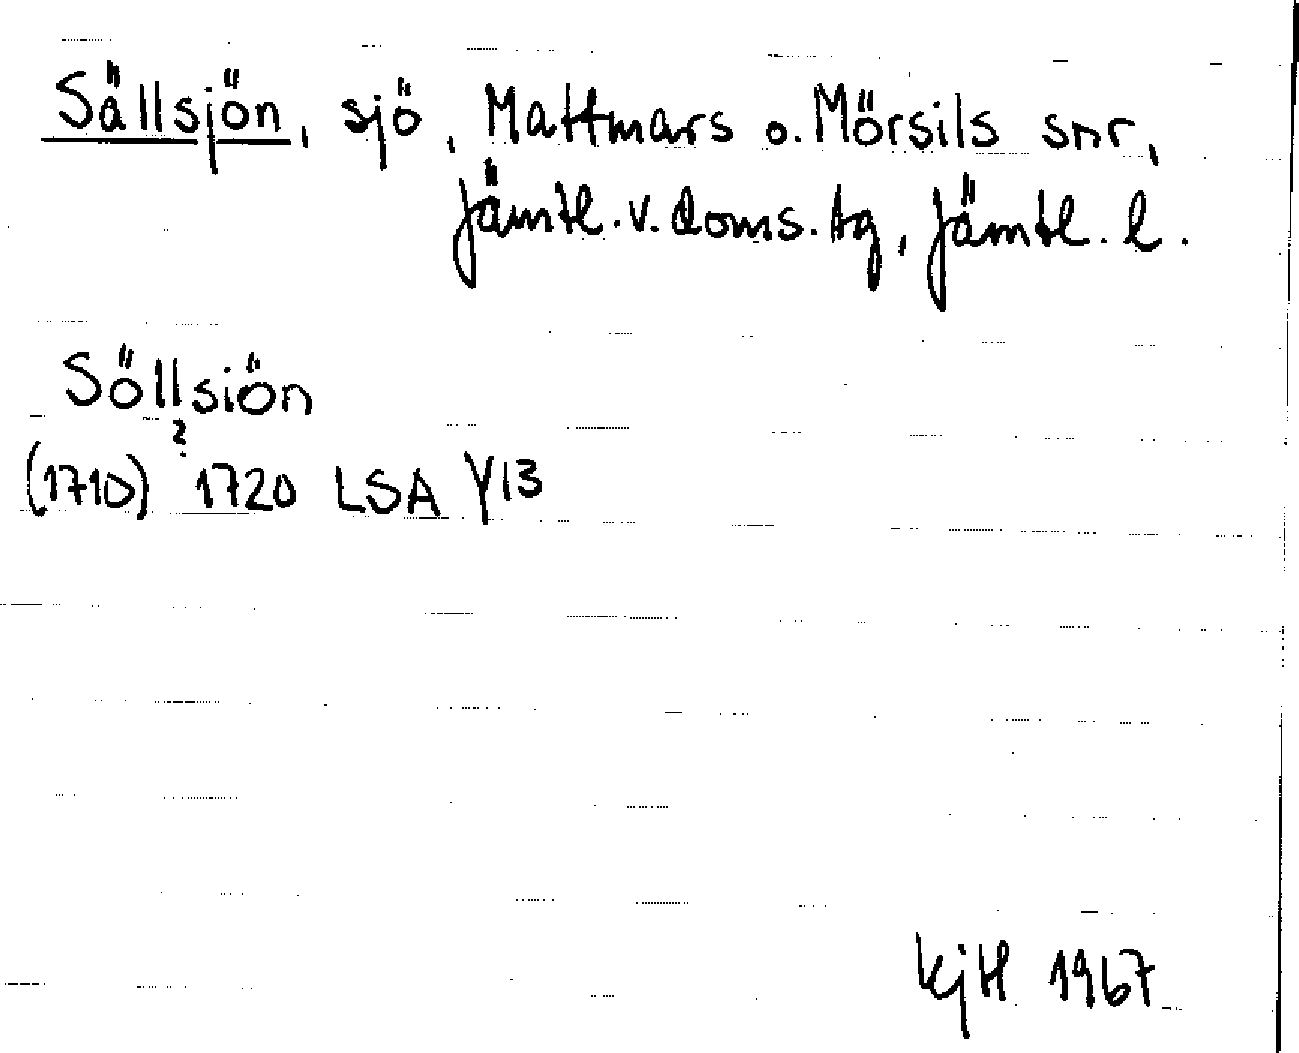 Sällsjön, sjö, Mattmars o. Mörsils snr,
Jämtl. v. doms. tg, Jämtl. l.
Söllsiön
(1710) ? 1720 LSA Y13
KjH 1967